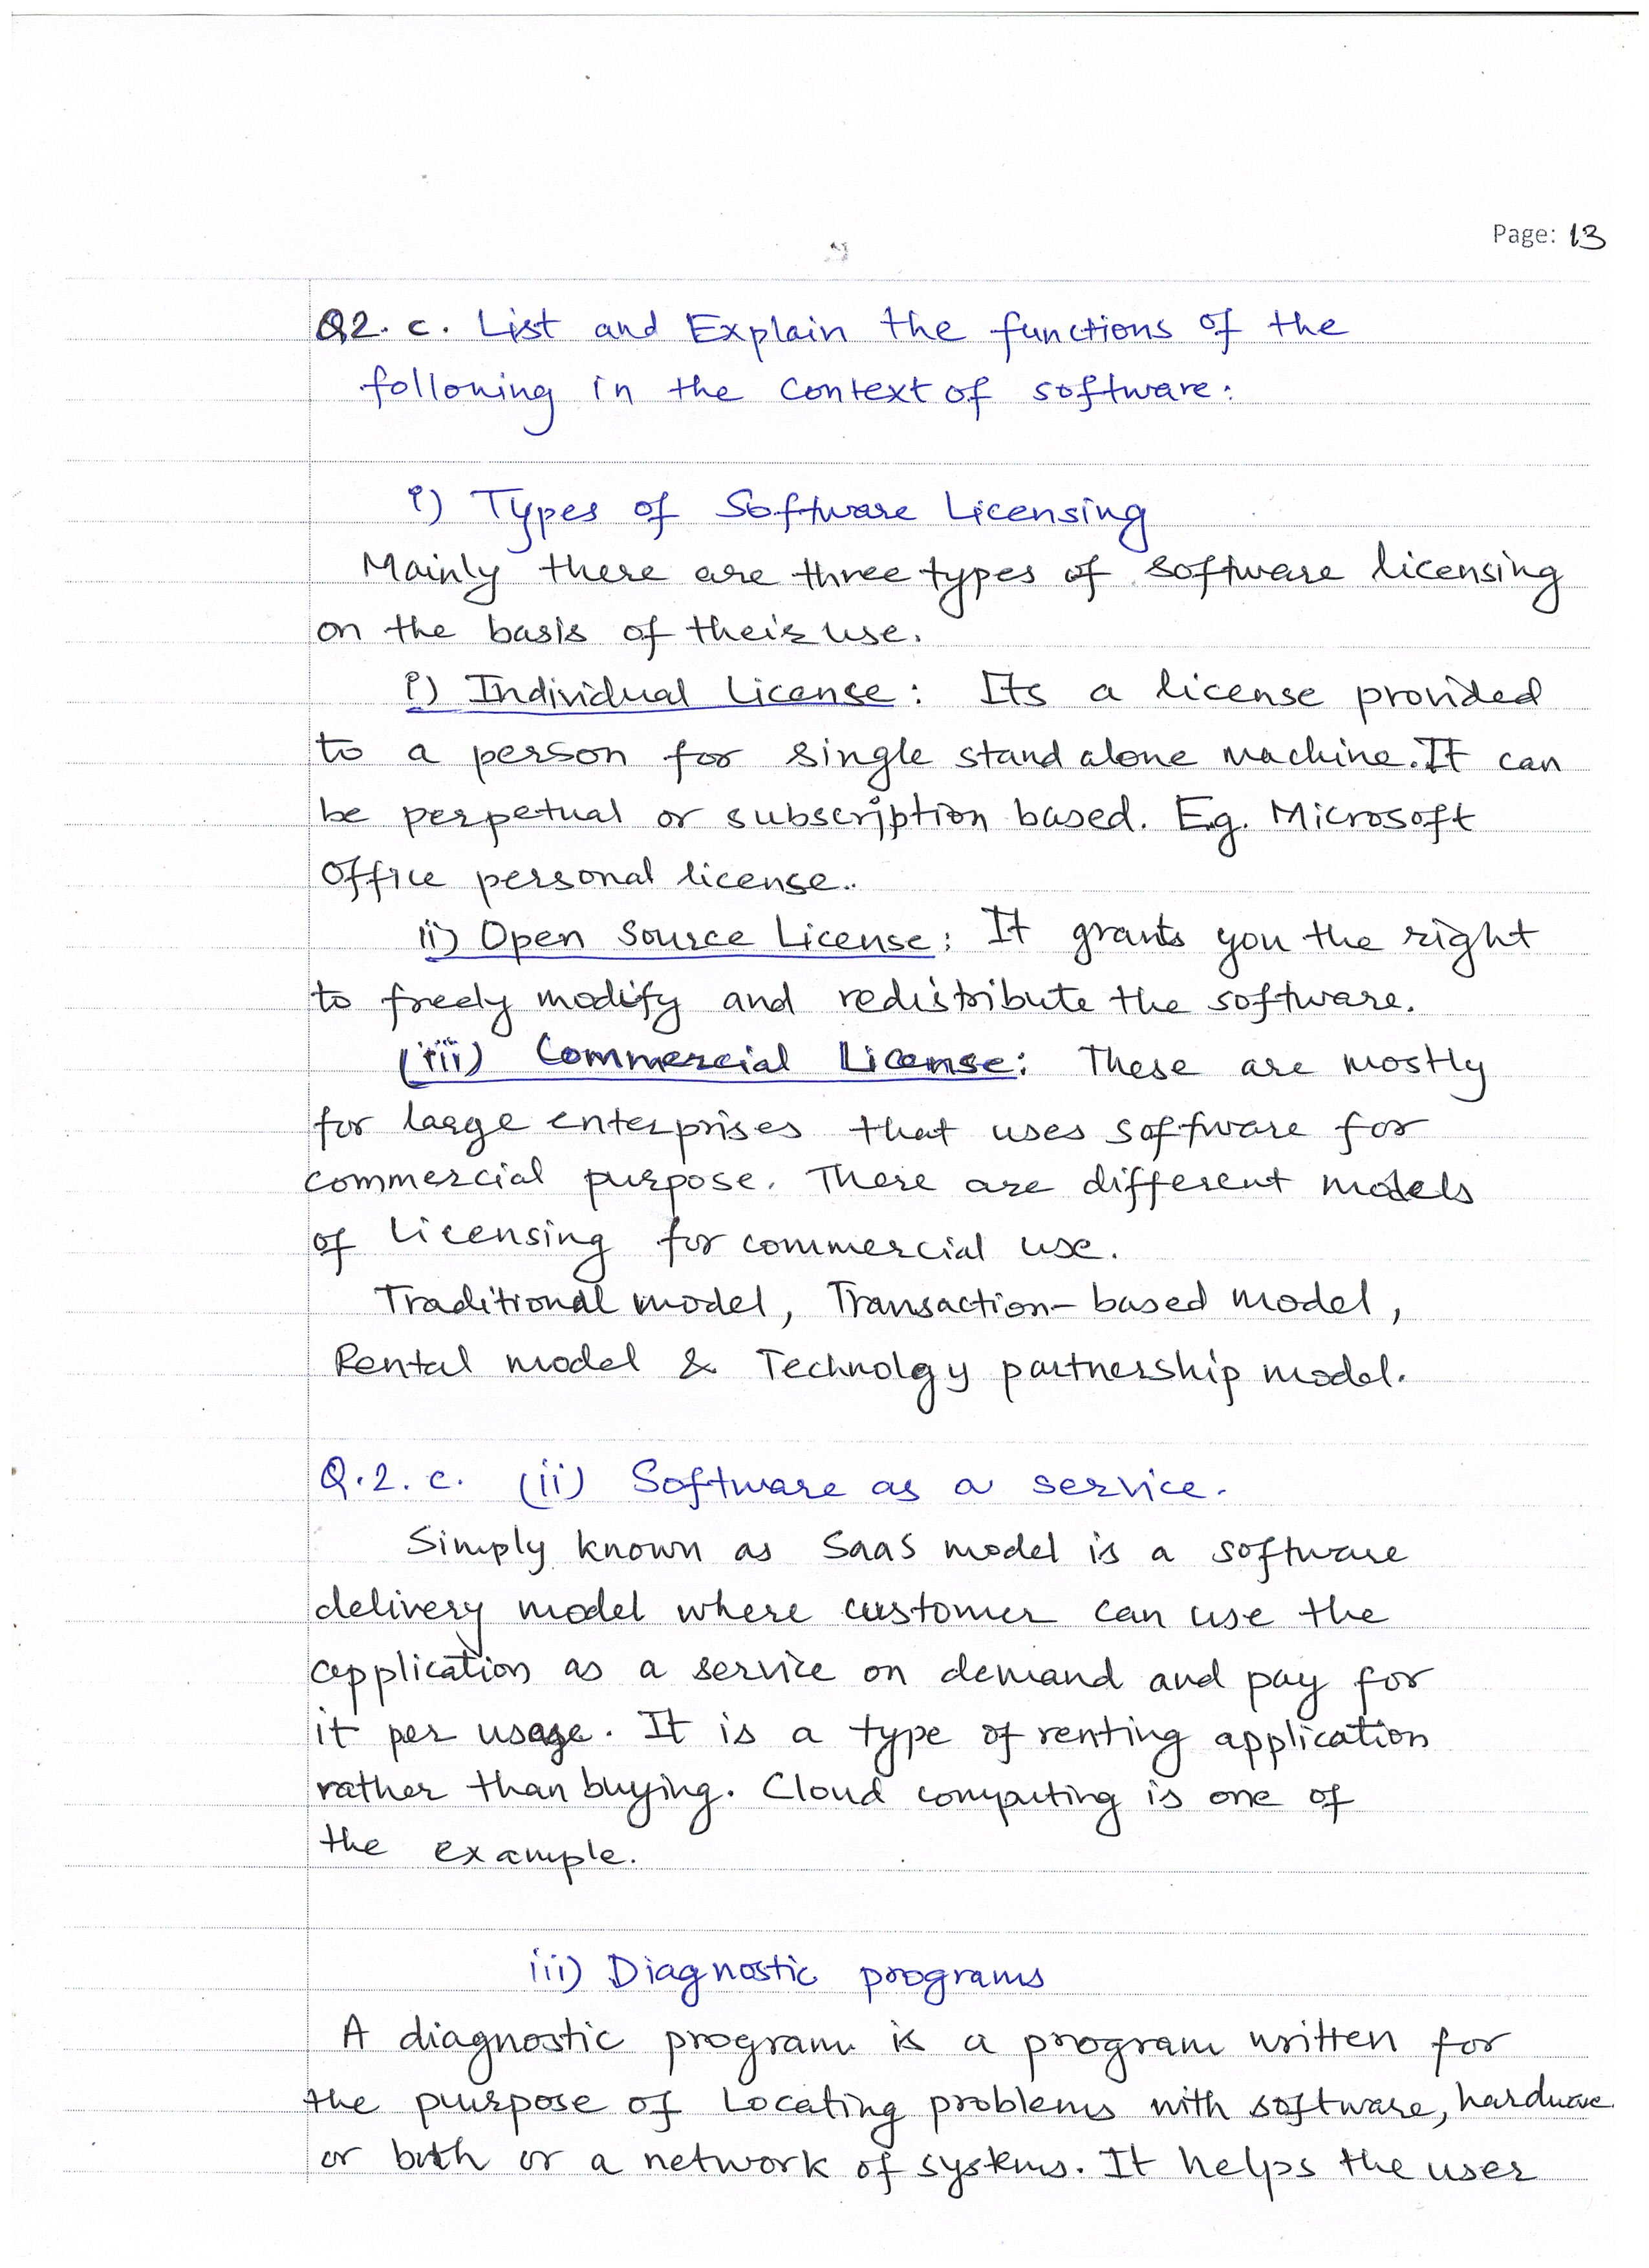 Page: 13
Q2. c. List and Explain the functions of the
following in the context of software:
i) Types of Software Licensing
Mainly there are three types of software licensing
on the basis of their use.
i) Individual License: Its a license provided
to a person for single stand alone machine. It can
be perpetual or subscription based. Eg. Microsoft
Office personal license.
ii) Open Source License: It grants you the right
to freely modify and redistribute the software.
(iii) Commercial License: These are mostly
for large enterprises that uses software for
commercial purpose. There are different models
of licensing for commercial use.
Traditional model, Transaction-based model,
Rental model & Technolgy partnership model.
Q.2. c. (ii) Software as a service.
Simply known as SaaS model is a software
delivery model where customer can use the
application as a service on demand and pay for
it per usage. It is a type of renting application
rather than buying. Cloud computing is one of
the example.
iii) Diagnostic programs
A diagnostic program is a program written for
the purpose of Locating problems with software, hardware
or both or a network of systems. It helps the user